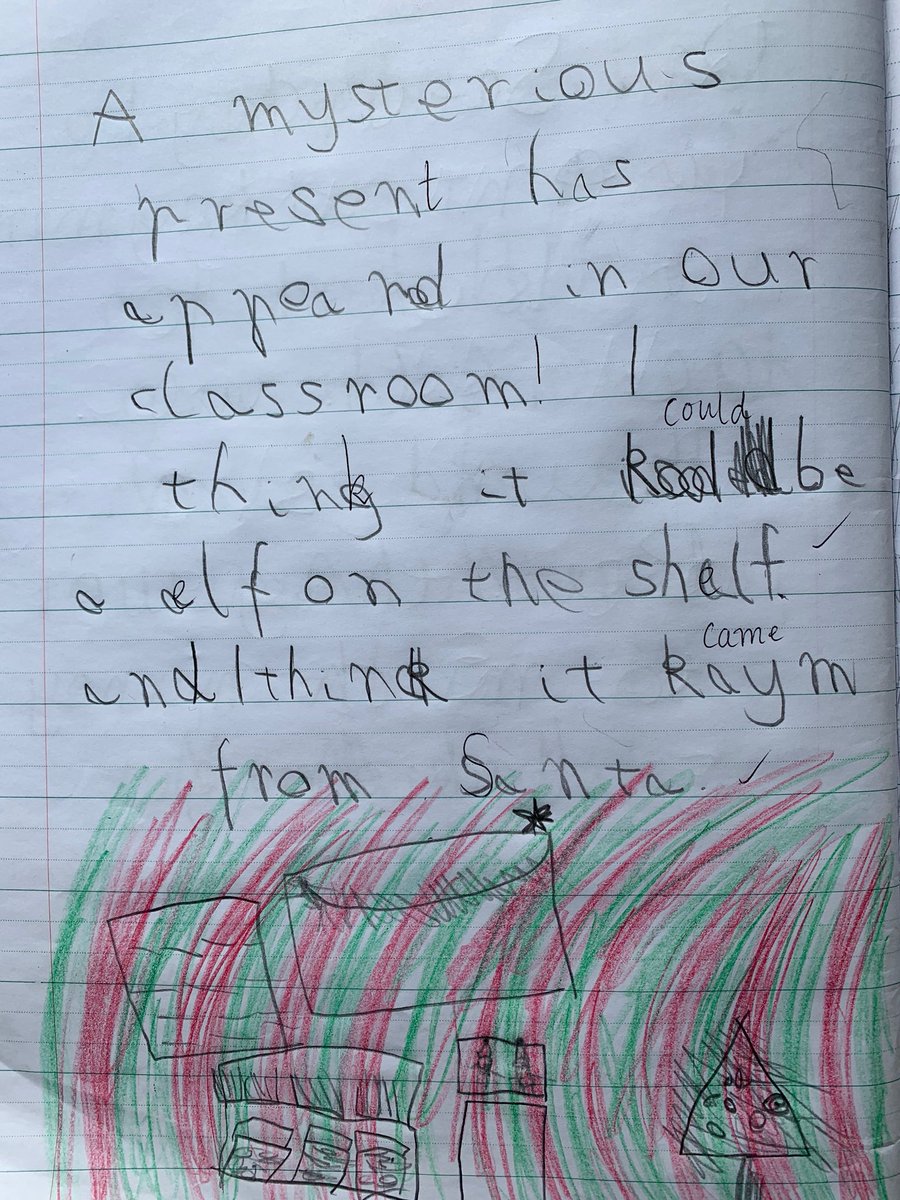 A mysterious
present has
appeard in our
classroom! I
could
think it be
a elf on the shelf.
came
and I think it kaym
from Santa.